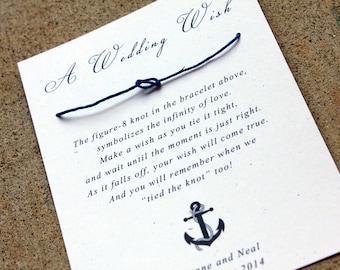 A Wedding Wish
The figure-8 knot in the bracelet above,
symbolizes the infinity of love.
Make a wish as you tie it tight,
and wait until the moment is just right.
As it falls off, your wish will come true.
And you will remember when we
"tied the knot" too!
and Neal
2014